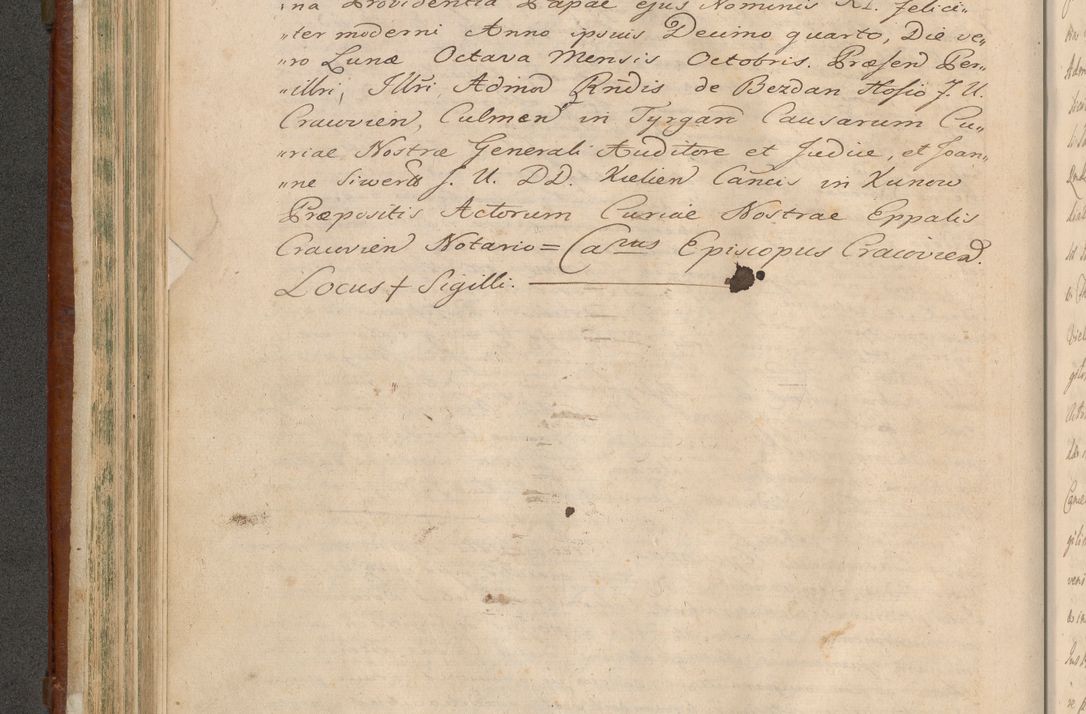 ina Providentia Papae ejus Nominis XI. felici„
„ter moderni Anno ipsuis Decimo quarto, Die ve„
„ro Lunæ Octava Mensis Octobris. Præsen Per„
„illri, Illri, Admod Rndis de Bezdan Hosio J. U.
Cracovien, Culmen in Tyrgard Causarum Cu„
„riae Nostræ Generali Auditore et Judice, et Joan„
„ne Siwerts J. U. DD. Kielien Cancis in Kunow
Præpositis Actorum Curiae Nostrae Eppalis
Cracovien Notario = Carus Episcopus Cracovien.
Locus + Sigilli.